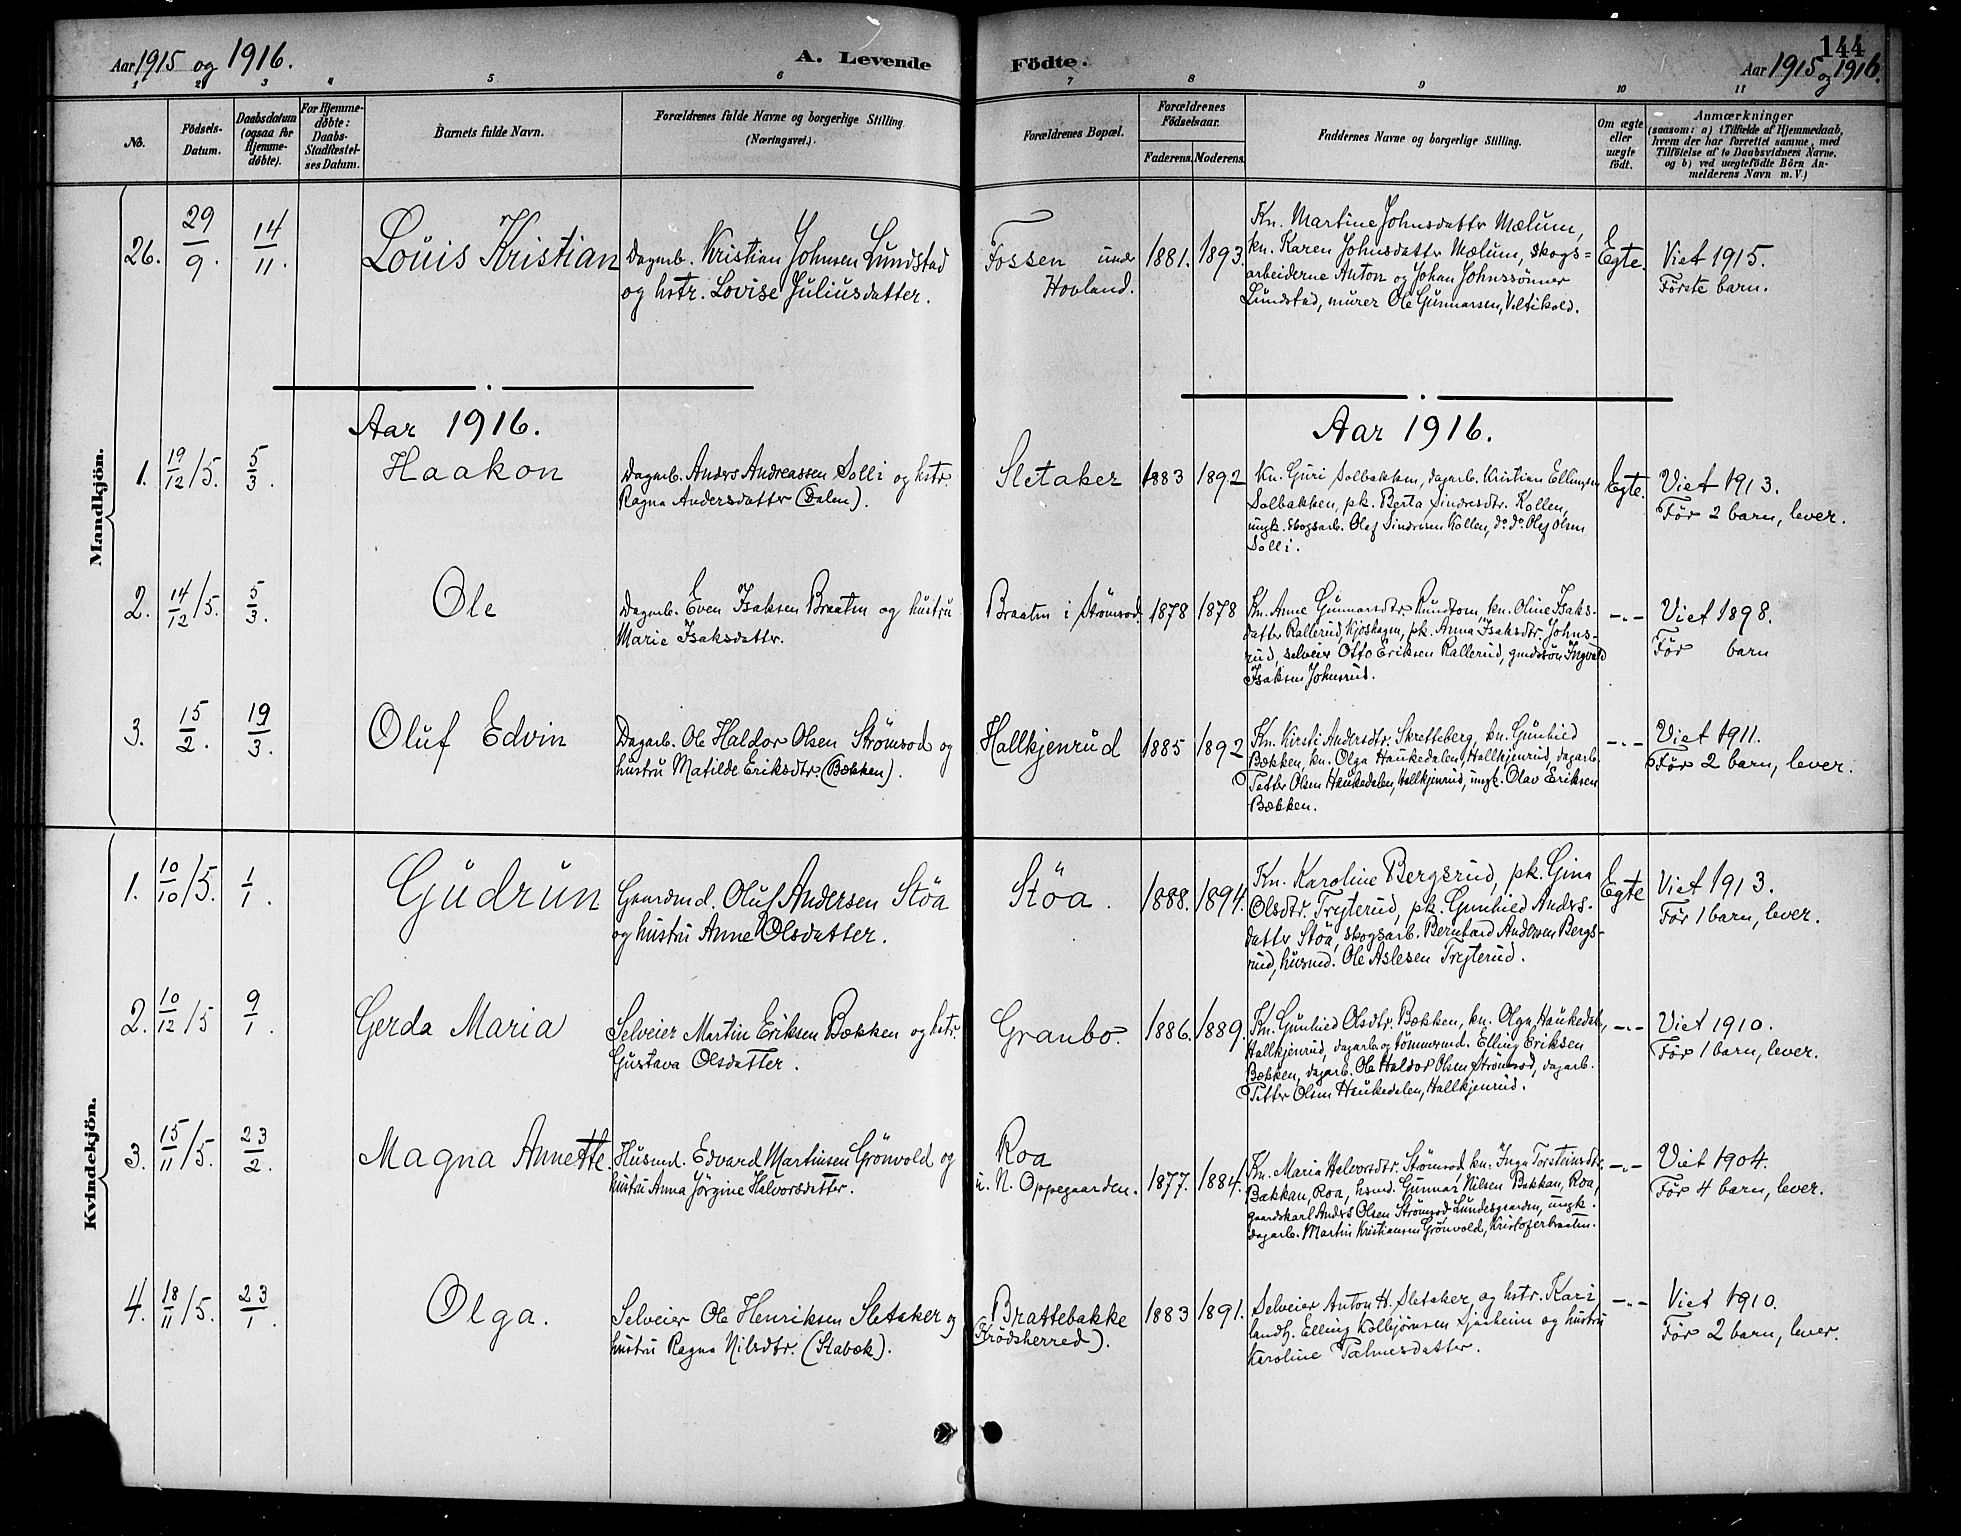 Aar 1915 og 1916.
A. Levende Födte.
144
Aar 1915 og 1916.
1 2 3 4 5 6 7 8 9 10 11
No.
Födsels-Datum.
Daabsdatum (ogsaa for Hjemme-döbte).
For Hjemme-döbte: Daabs-Stadfæstel-ses Datum.
Barnets fulde Navn.
Forældrenes fulde Navne og borgerlige Stilling (Næringsvei.).
Forældrenes Bopæl.
Forældrenes Födselsaar.
Faderens. Moderens.
Faddernes Navne og borgerlige Stilling.
Om ægte eller uægte födt.
Anmærkninger
(saasom: a) i Tilfælde af Hjemmedaab,
hvem der har forrettet samme, med
Tilföielse af to Daabsvidners Navne.
og b) ved uægtefödte Börn An-
melderens Navn m. V.)
Mandkjön.
26. 29/9. 14/11. Louis Kristian
Dagarb. Kristian Johnsen Lundstad
og hstr. Lovise Juliusdatter.
Fossen under
Hovland.
1881. 1893.
Kn. Martine Johnsdattr Mælum,
kn. Karen Johnsdattr Mælum, skogs=
arbeiderne Anton og Johan Johnssönner
Lundstad, murer Ole Gunnarsen, Veltikold.
Egte.
Viet 1915.
Förste barn.
Aar 1916.
Aar 1916.
1. 19/12/15. 5/3. Haakon
Dagarb. Anders Andreassen Solli og hstr.
Ragna Andersdatter (Dalen).
Sletaker
1883 1892
Kn. Guri Solbakken, dagarb. Kristian Ellingsen
Solbakken, pk. Berta Sindresdtr. Kollen,
ungk. skogsarb. Olaf Sindresen Kollen, do do Olaf Olsen
Solli.
Egte.
Viet 1913.
Før 2 barn, lever.
2. 14/12/15. 5/3. Ole
Dagarb. Even Isaksen Braaten og hustru
Marie Isaksdatter.
Braaten i Strömsod
1878 1878
Kn. Anne Gunnarsdtr. Rundtom, kn. Oline Isaks-
datter Rallerud, Kjoshagen, pk. Anna Isaksdtr. Johns-
rud, selveier Otto Eriksen Rallerud, gmdssön Ingvald
Isaksen Johnsrud.
-„-
Viet 1898.
Før barn
3. 15/2. 19/3. Oluf Edvin
Dagarb. Ole Haldor Olsen Strömsod og
hustru Matilde Eriksdtr. (Bækken).
Hallkjenrud
1885 1892
Kn. Kirsti Andersdtr. Skretteberg, kn. Gunhild
Bækken, kn. Olga Haukedalen, Hallkjenrud, dagarb.
Petter Olsen Haukedalen, Hallkjenrud, ungk. Olav Eriksen
Bækken.
-„-
Viet 1911.
Før 2 barn, lever.
Kvindekjön.
1. 10/10/15. 1/1. Gudrun
Gaardmd. Oluf Andersen Stöa
og hustru Anne Olsdatter.
Stöa.
1888. 1894.
Kn. Karoline Bergsrud, pk. Gina
Olsdtr. Tryterud, pk. Gunhild Anders-
datter Stöa, skogsarb. Bernhard Andersen Bergs-
rud, husmd. Ole Aslesen Tryterud.
Egte
Viet 1913.
Før 1 barn, lever.
2. 10/12/15 9/1. Gerda Maria
Selveier Martin Eriksen Bækken og hstr.
Gustava Olsdatter.
Granbo.
1886. 1889.
Kn. Gunhild Olsdtr. Bækken, kn. Olga Haukedal,
Hallkjenrud, dagarb. og tömmermd. Elling Eriksen
Bækken, dagarb. Ole Haldor Olsen Strömsod, dagarb.
Petter Olsen Haukedalen, Hallkjenrud.
-„-
Viet 1910.
Før 1 barn, lever.
3. 15/11/15. 23/2. Magna Annette.
Husmd. Edvard Martinsen Grönvold og
hustru Anna Jörgine Halvorsdatter.
Roa
u. N. Oppegaarden.
1877. 1884.
Kn. Maria Halvorsdtr. Strömsod, kn. Inga Torsteinsdtr.
Bakkan, Roa, husmd. Gunnar Nilsen Bakkan, Roa,
gaardskarl Anders Olsen Strömsod Lundesgaarden, ungk.
dagarb. Martin Kristiansen Grönvold, Kristoferbraaten.
-„-
Viet 1904.
Før 4 barn, lever.
4. 18/11/15. 23/1. Olga.
Selveier Ole Henriksen Sletaker og
hustru Ragna Nilsdtr. (Stavæk).
Brattebakke
(Krödsherred).
1883 1891.
Selveier Anton H. Sletaker og hstr. Kari,
landh. Elling Kolbjörnsen Ljøsheim og hustru
Karoline
-„-
Viet 1910.
Før 2 barn, lever.